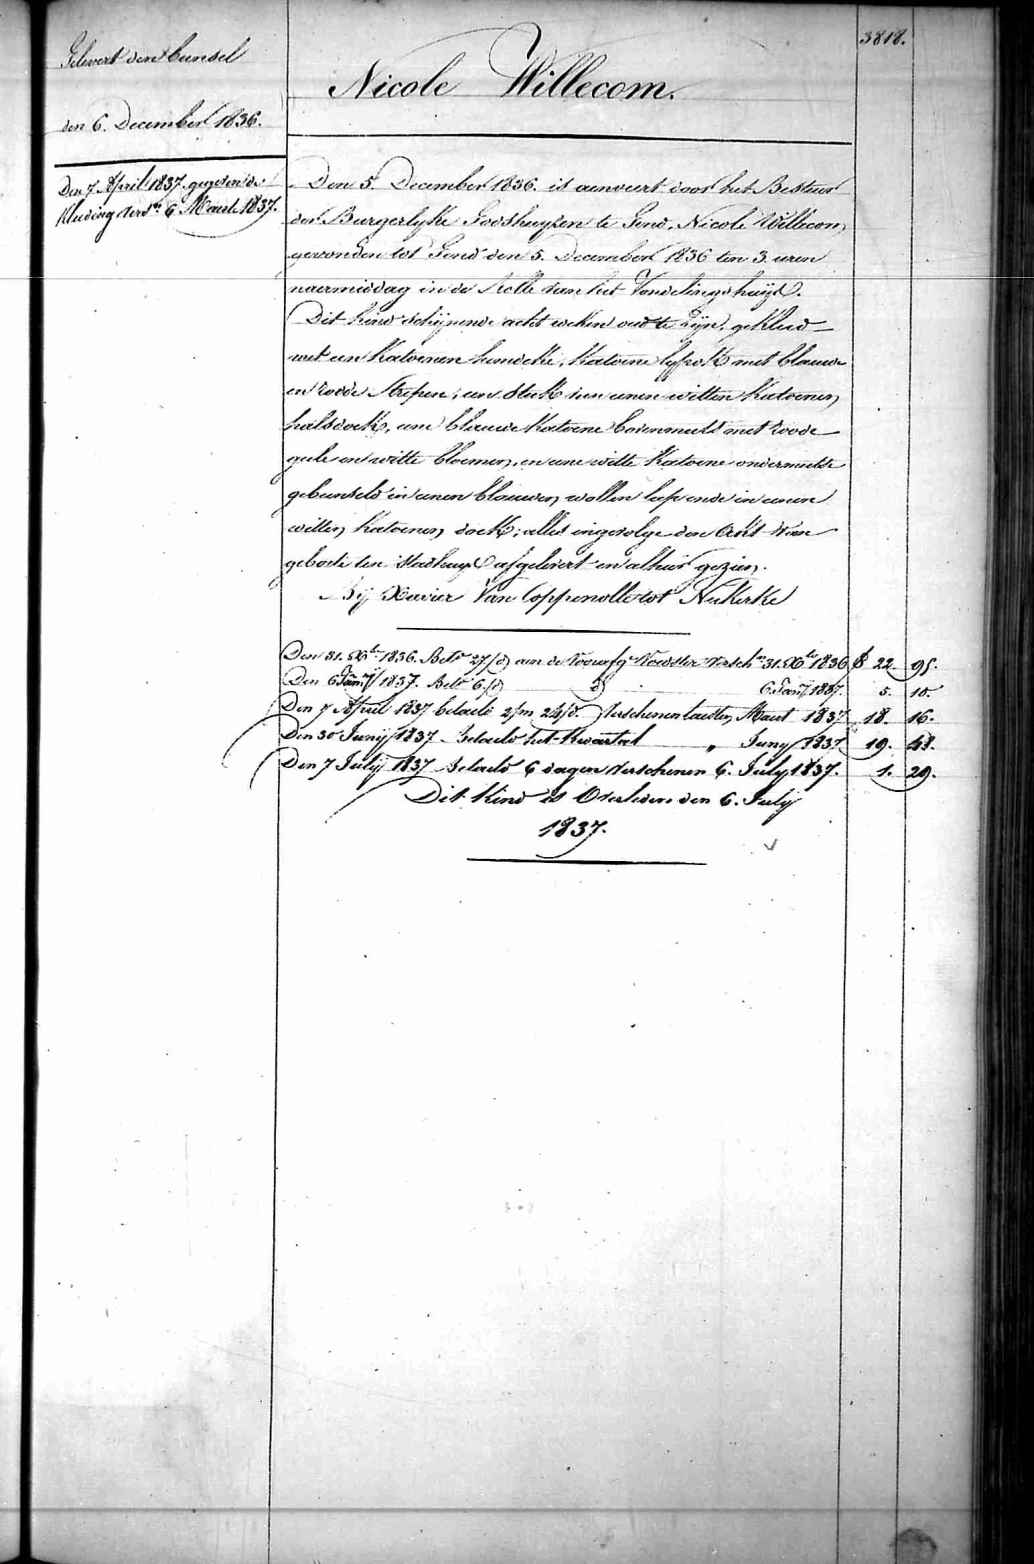 3818.
Gelevert den bunsel
den 6. December 1836.
Den 7. April 1837 gegeven de
kleding vers.n 6 Maart 1837.
Nicole Willecom.
Den 5. December 1836. is aenveert door het Bestuur
der Burgerlyke Godshuyzen te Gend, Nicole Willecom,
gevonden tot Gend den 5. December 1836 ten 3. uren
naermiddag in de Rolle van het Vondelingshuys.
Dit kind schijnende acht weken oud te zijn, gekleed
met een katoenen hemdeke, katoene lyfrok met blauwe
en roode strepen, een stuk van eenen witten katoenen
halsdoek, eene blauwe katoene bovenmuts met roode
gele en witte bloemen, en eene witte katoene ondermuts
gebunseld in eenen blauwen wollen lap ende in eenen
witten katoenen doek; alles ingevolge den Akt van
geboorte ten Stadhuyse afgelevert en alhier gezien.
Bij Xavier Van Coppenolle tot Nukerke
Den 31. Xb. 1836. Bet. 27/d aen de voedster versch.n 31. Xb. 1836 22. 95.
Den 6 Jan.y 1837. Bet. 6/d d 6 Jan.y 1837. 5. 10.
Den 7 April 1837 betaeld 2/m 24/d. verschenen laetsten Maart 1837 18. 16.
Den 30 Junij 1837 betaeld het kwartael " Juny 1837 19. 48.
Den 7 July 1837 betaeld 6 dagen verschenen 6. July 1837. 1. 29.
Dit kind is Overleden den 6. July
1837.